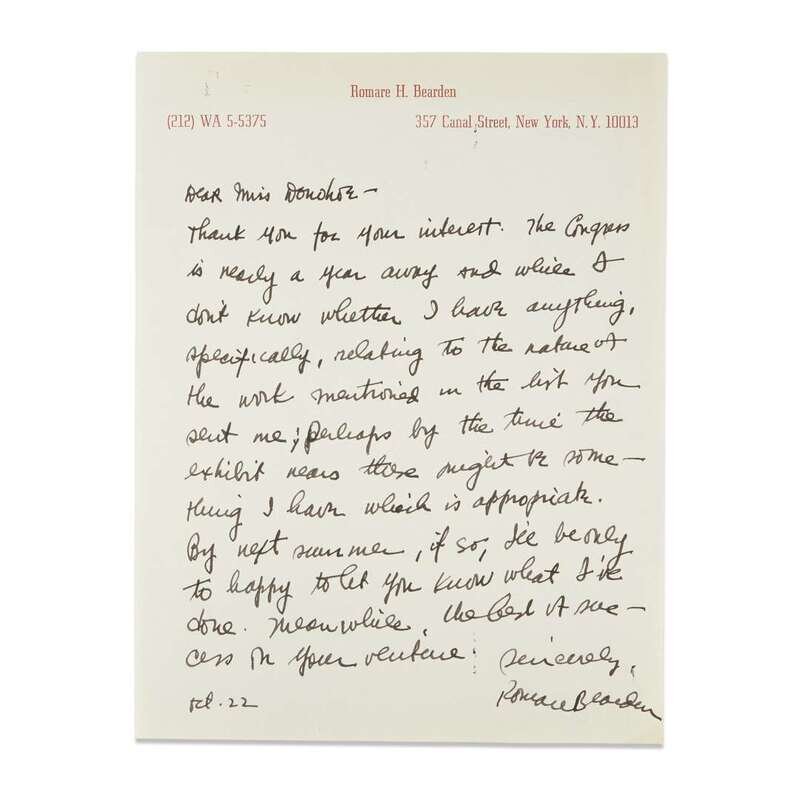 Romare H. Bearden
(212) WA 5-5375 357 Canal Street, New York, N.Y. 10013
Dear Miss Donohoe —
Thank you for your interest. The Congress
is nearly a year away and while I
don't know whether I have anything,
specifically, relating to the nature of
the work mentioned in the list you
sent me; perhaps by the time the
exhibit nears there might be some—
thing I have which is appropriate.
By next summer, if so, I'll be only
to happy to let you know what I've
done. Meanwhile, the best of suc—
cess on your venture. Sincerely,
Oct. 22 Romare Bearden